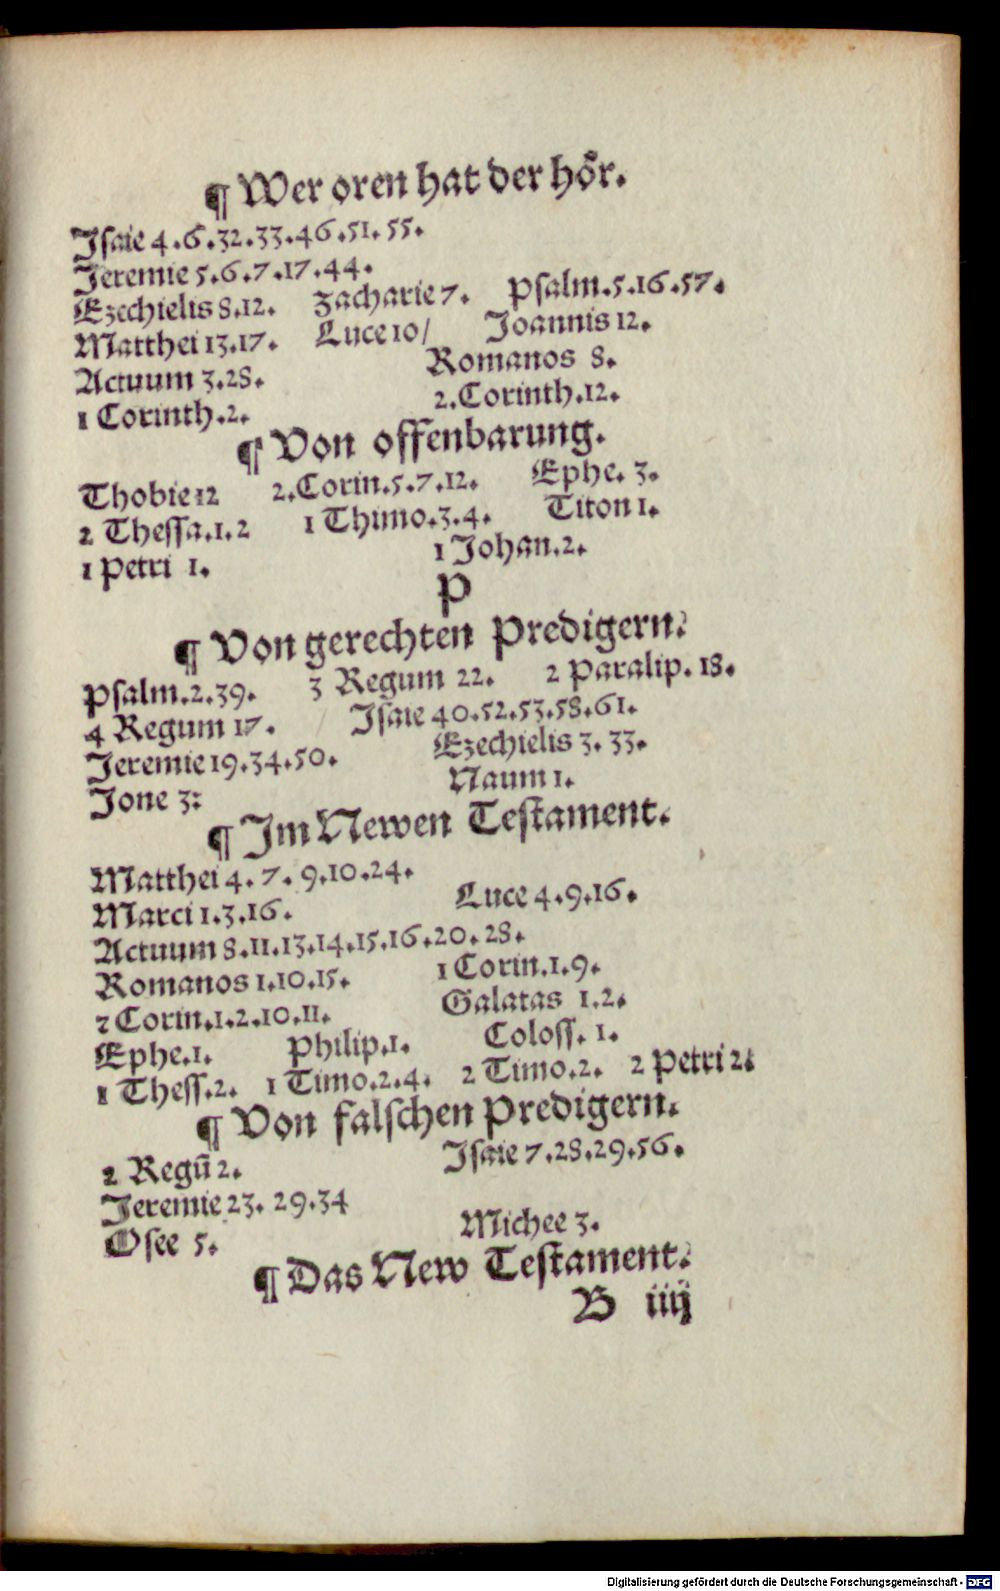 ¶ Wer oren hat der hoͤr.
Jsaie 4.6.32.33.46.51.55.
Jeremie 5.6.7.17.44.
Ezechielis 8.12. Zacharie 7. Psalm.5.16.57.
Matthei 13.17. Luce 10/ Joannis 12.
Actuum 3.28. Romanos 8.
1 Corinth.2. 2.Corinth.12.
¶ Von offenbarung.
Thobie 12 2.Corin.5.7.12. Ephe. 3.
2 Thessa.1.2 1 Thimo.3.4. Titon 1.
1 Petri 1. 1 Johan.2.
P
¶ Von gerechten Predigern.
Psalm.2.39. 3 Regum 22. 2 Paralip. 18.
4 Regum 17. Jsaie 40.52.53.58.61.
Jeremie 19.34.50. Ezechielis 3. 33.
Jone 3: Naum 1.
¶ Jm Newen Testament.
Matthei 4. 7. 9.10.24.
Marci 1.3.16. Luce 4.9.16.
Actuum 8.11.13.14.15.16.20.28.
Romanos 1.10.15. 1 Corin.1.9.
2 Corin.1.2.10.11. Galatas 1.2.
Ephe.1. Philip.1. Coloss. 1.
1 Thess.2. 1 Timo.2.4. 2 Timo.2. 2 Petri 2.
¶ Von falschen Predigern.
2 Regū 2. Jsaie 7.28.29.56.
Jeremie 23. 29.34
Osee 5. Michee 3.
¶ Das New Testament.
B iiij
Digitalisierung gefördert durch die Deutsche Forschungsgemeinschaft - DFG